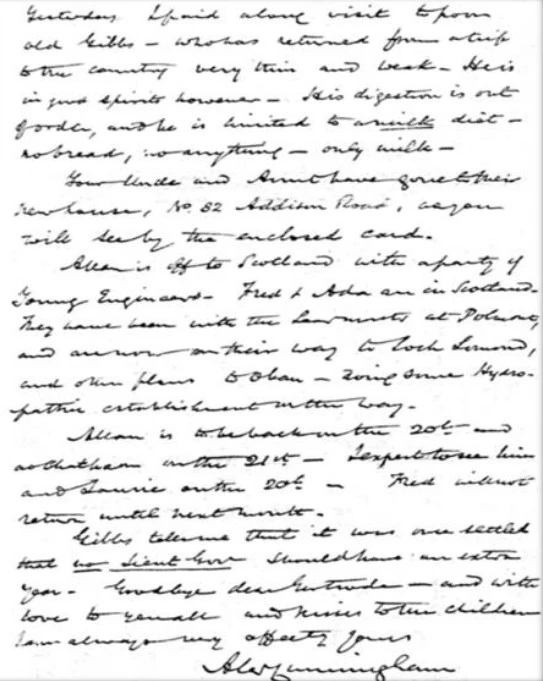 Yesterday I paid a long visit to poor
old Gibbs – who has returned from a trip
to the country very thin and weak – He is
in good spirits however – His digestion is out
of order, and he is limited to a milk diet –
no bread, no anything – only milk –
Your Uncle and Aunt have gone to their
new house, No. 32 Addison Road, as you
will see by the enclosed card.
Allan is off to Scotland with a party of
Young Engineers – Fred & Ada are in Scotland –
They have been with the at Polmont,
and are now on their way to Loch Lomond,
and other places to Oban – some Hydro-
pathic establishment on the way.
Allan is to be back on the 20th and
at Chatham on the 21st – I expect to see him
and Laurie on the 20th – Fred will not
return until next month.
Gibbs tells me that it was once settled
that no Lieut Govr should have an extra
year – Goodbye dear Gertrude – and with
love to you all and kisses to the children
I am always very affectly yours
Alex Cunningham